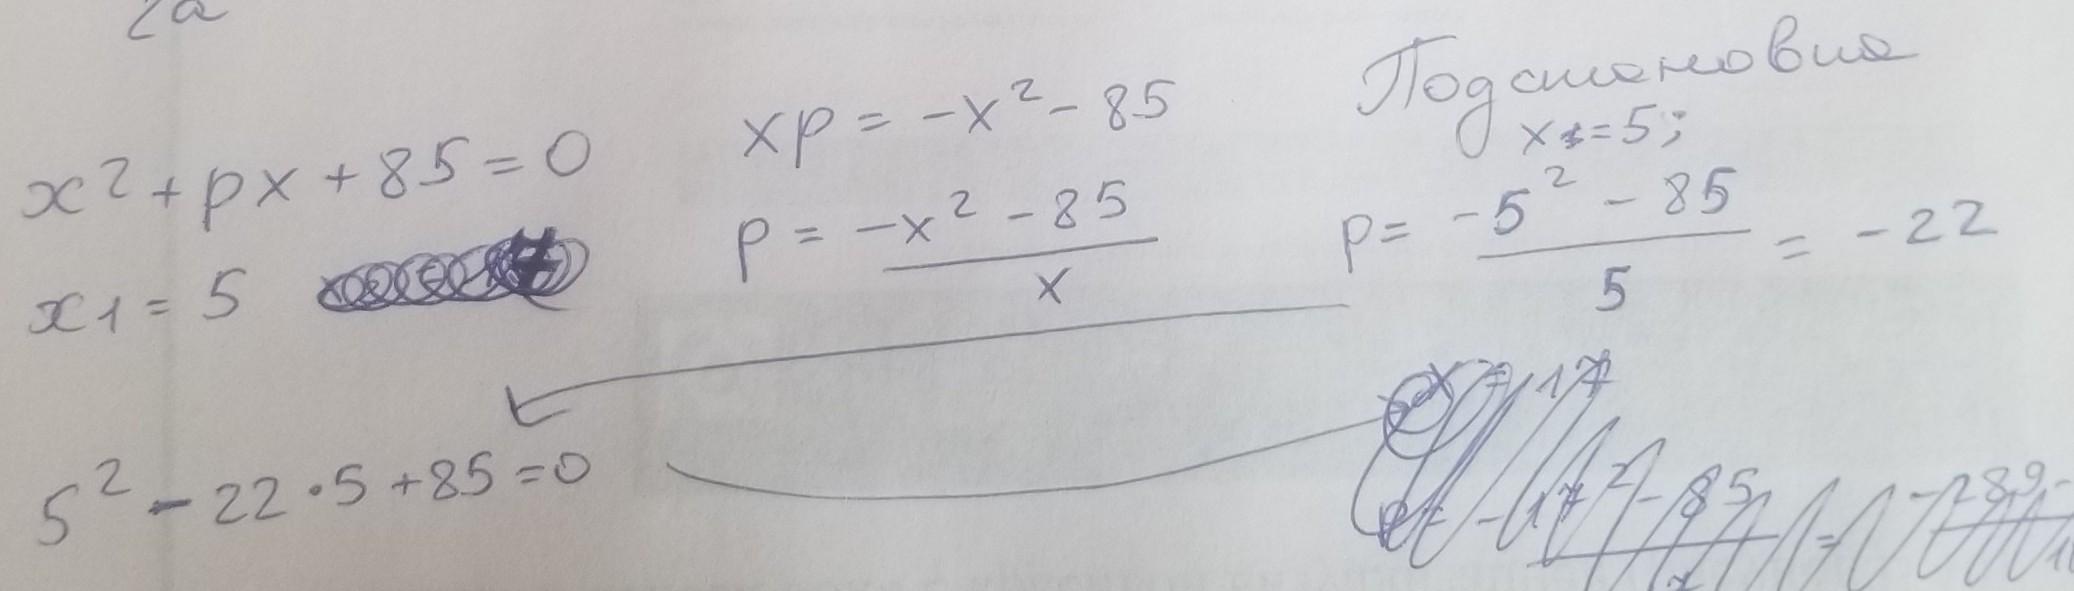 2a
x² + px + 85 = 0
x1 = 5
xp = -x² - 85
p = (-x² - 85) / x
Подстановка
x = 5;
p = (-5² - 85) / 5 = -22
5² - 22 · 5 + 85 = 0
x = 17
-17² - 85